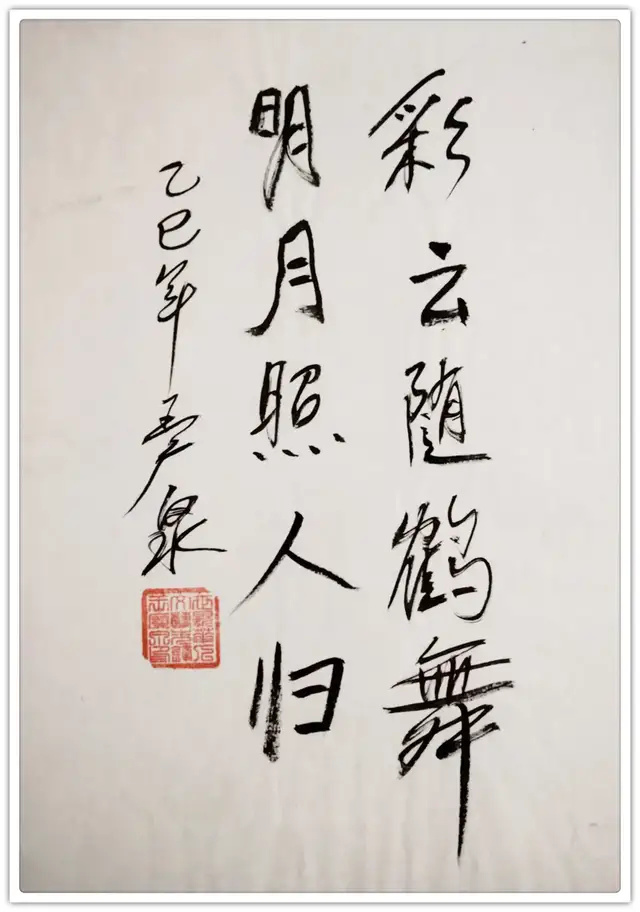 彩云随鹤舞
明月照人归
乙巳年 泉